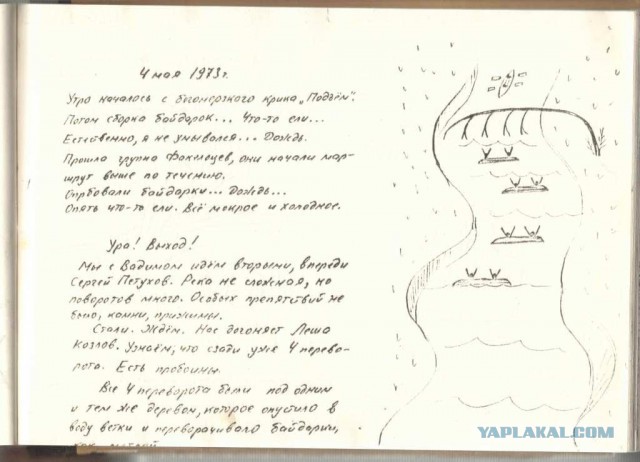 4 мая 1973г.
Утро началось с богомерзкого крика „Подъём".
Потом сборка байдарок... Что-то ели...
Естественно, я не умывался... Дождь.
Прошла группа Факельцев, они начали мар-
шрут выше по течению.
Опробовали байдарки... Дождь...
Опять что-то ели. Всё мокрое и холодное.
Ура! Выход!
Мы с Вадимом идём вторыми, впереди
Сергей Петухов. Река не сложная, но
поворотов много. Особых препятствий не
было, камни, прижимы.
Стали. Ждём. Нас догоняет Леша
Козлов. Узнаём, что сзади уже 4 перево-
рота. Есть пробоины.
Все 4 переворота были под одним
и тем же деревом, которое опустило в
воду ветки и переворачивало байдарки,
как метлой
YAPLAKAL.COM